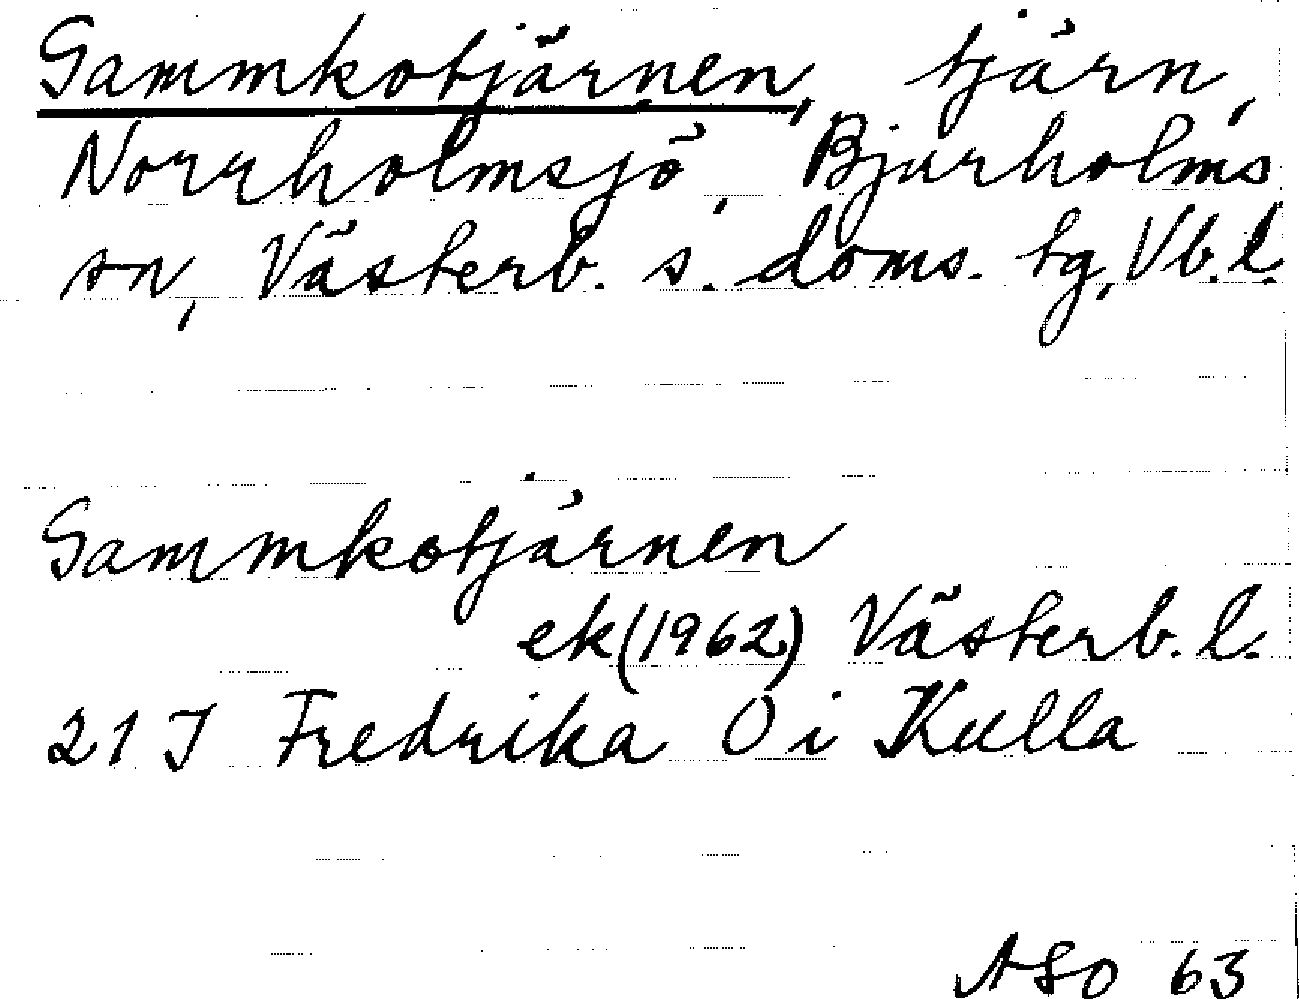 Sammkotjärnen, tjärn,
Norrholmsjö, Bjurholms
sn, Västerb. s. doms. tg, Vb. l.
Sammkotjärnen
ek (1962) Västerb. l.
21 J Fredrika O i Kulla
ASO 63